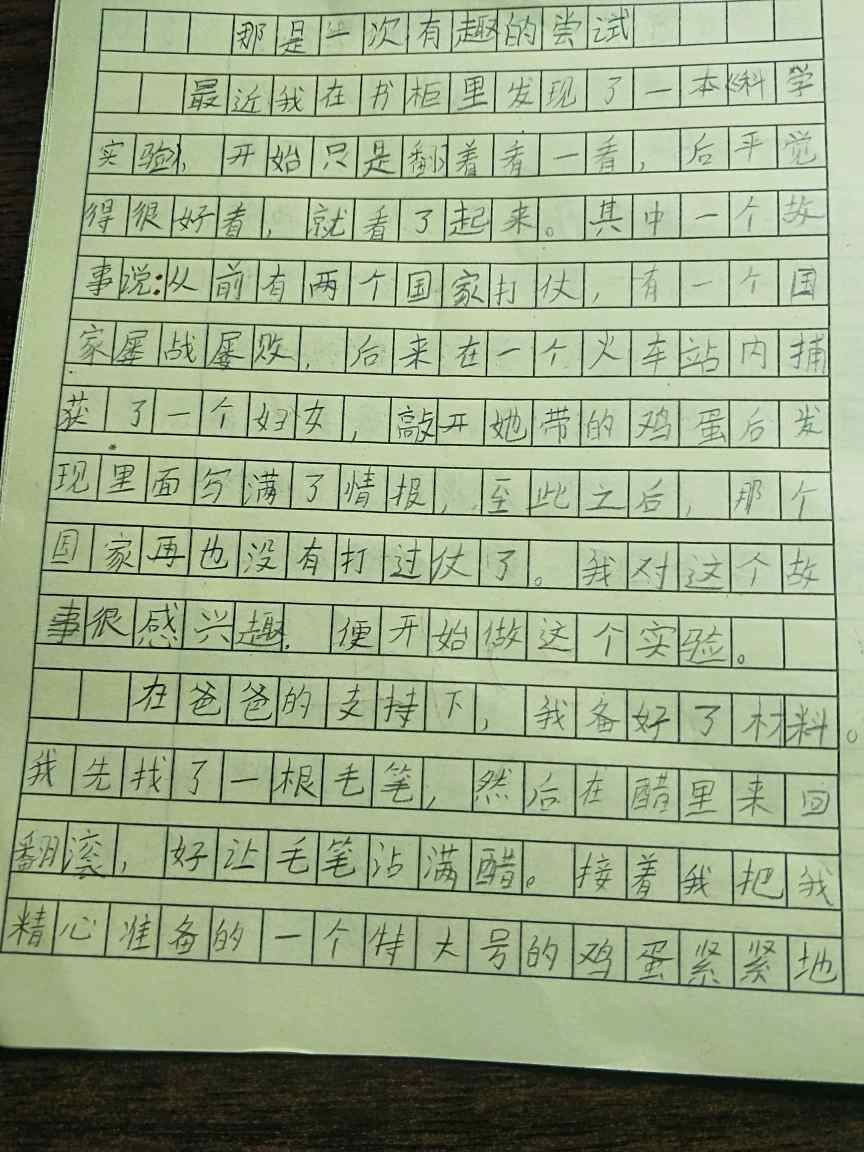 那是一次有趣的尝试
最近我在书柜里发现了一本《科学
实验》，开始只是翻着看一看，后平觉
得很好看，就看了起来。其中一个故
事说:从前有两个国家打仗，有一个国
家屡战屡败，后来在一个火车站内捕
获了一个妇女，敲开她带的鸡蛋后发
现里面写满了情报，至此之后，那个
国家再也没有打过仗了。我对这个故
事很感兴趣，便开始做这个实验。
在爸爸的支持下，我备好了材料。
我先找了一根毛笔，然后在醋里来回
翻滚，好让毛笔沾满醋。接着我把我
精心准备的一个特大号的鸡蛋紧紧地